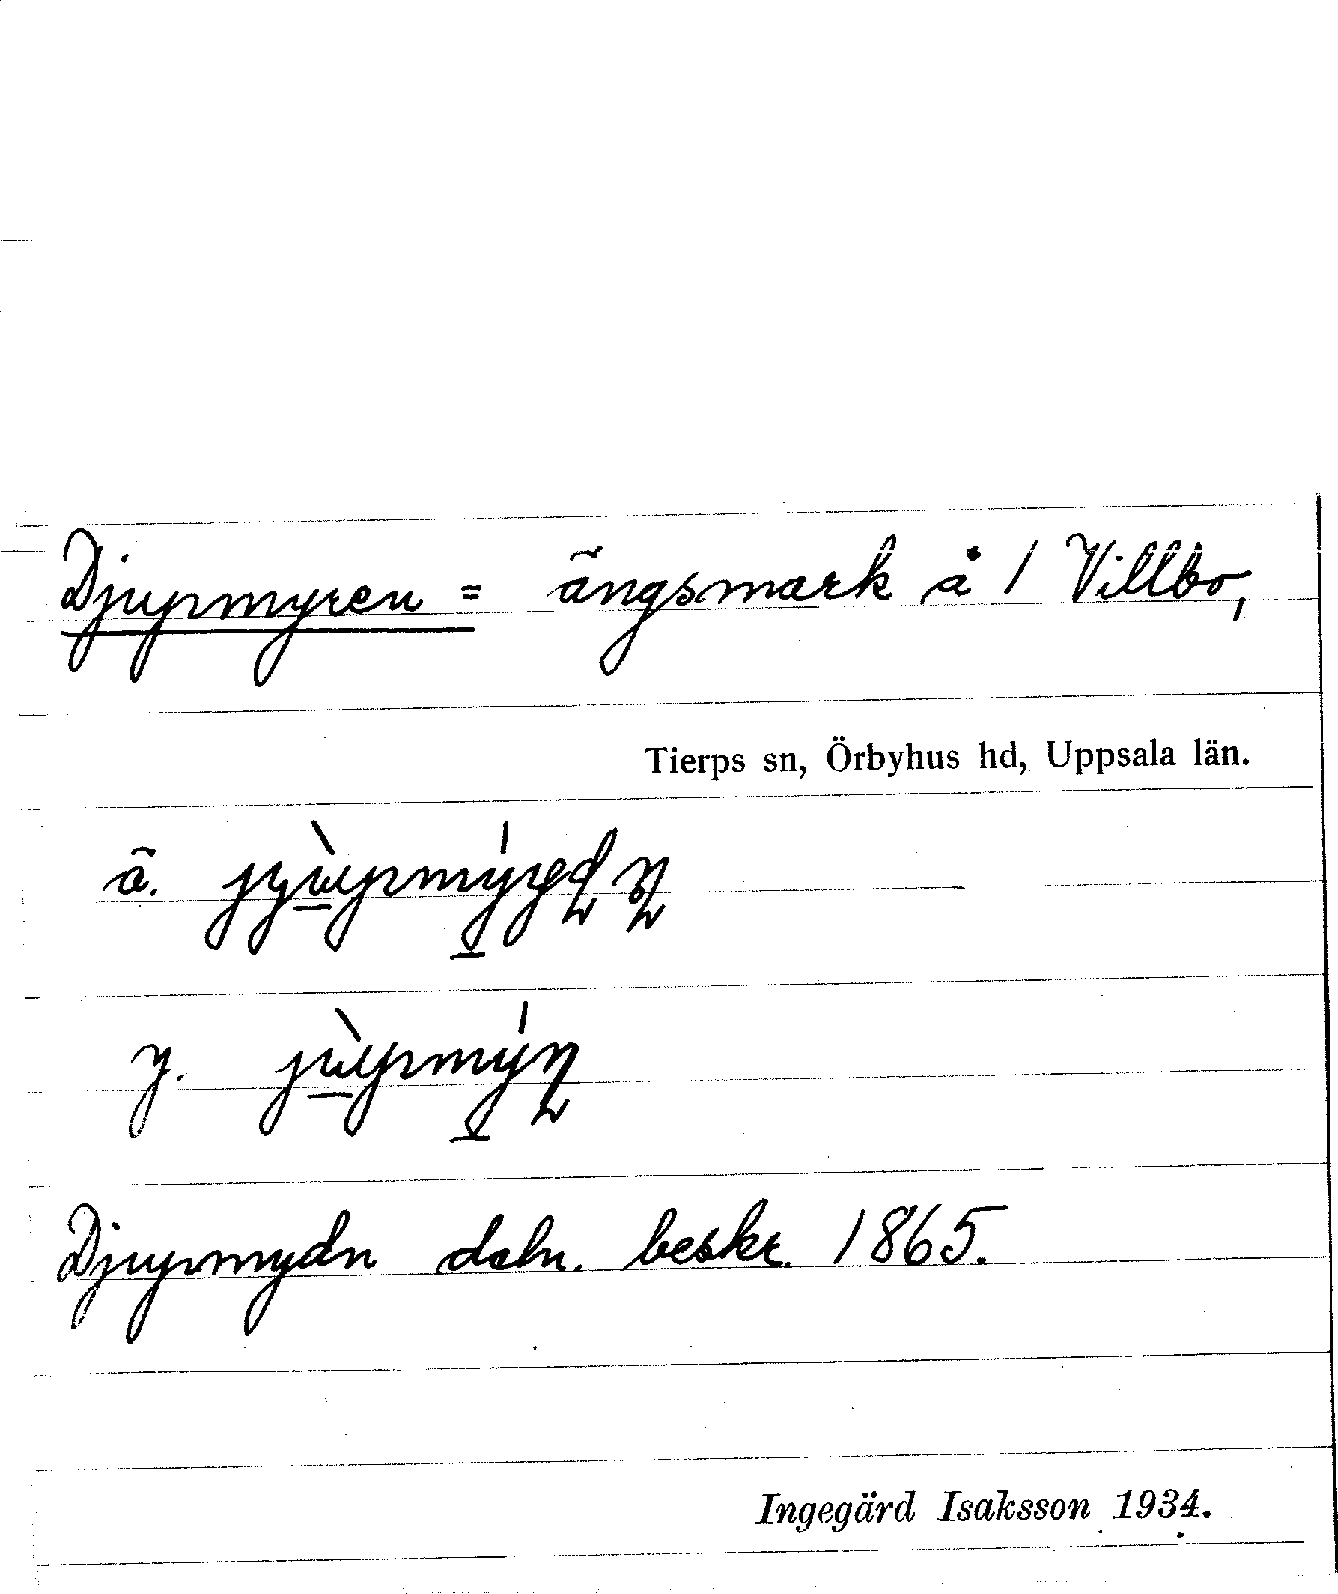 Djupmyren = ängsmark å 1 Villbo,
Tierps sn, Örbyhus hd, Uppsala län.
ä.
y.
Djupmydn dsbn. beskr. 1865.
Ingegärd Isaksson 1934.